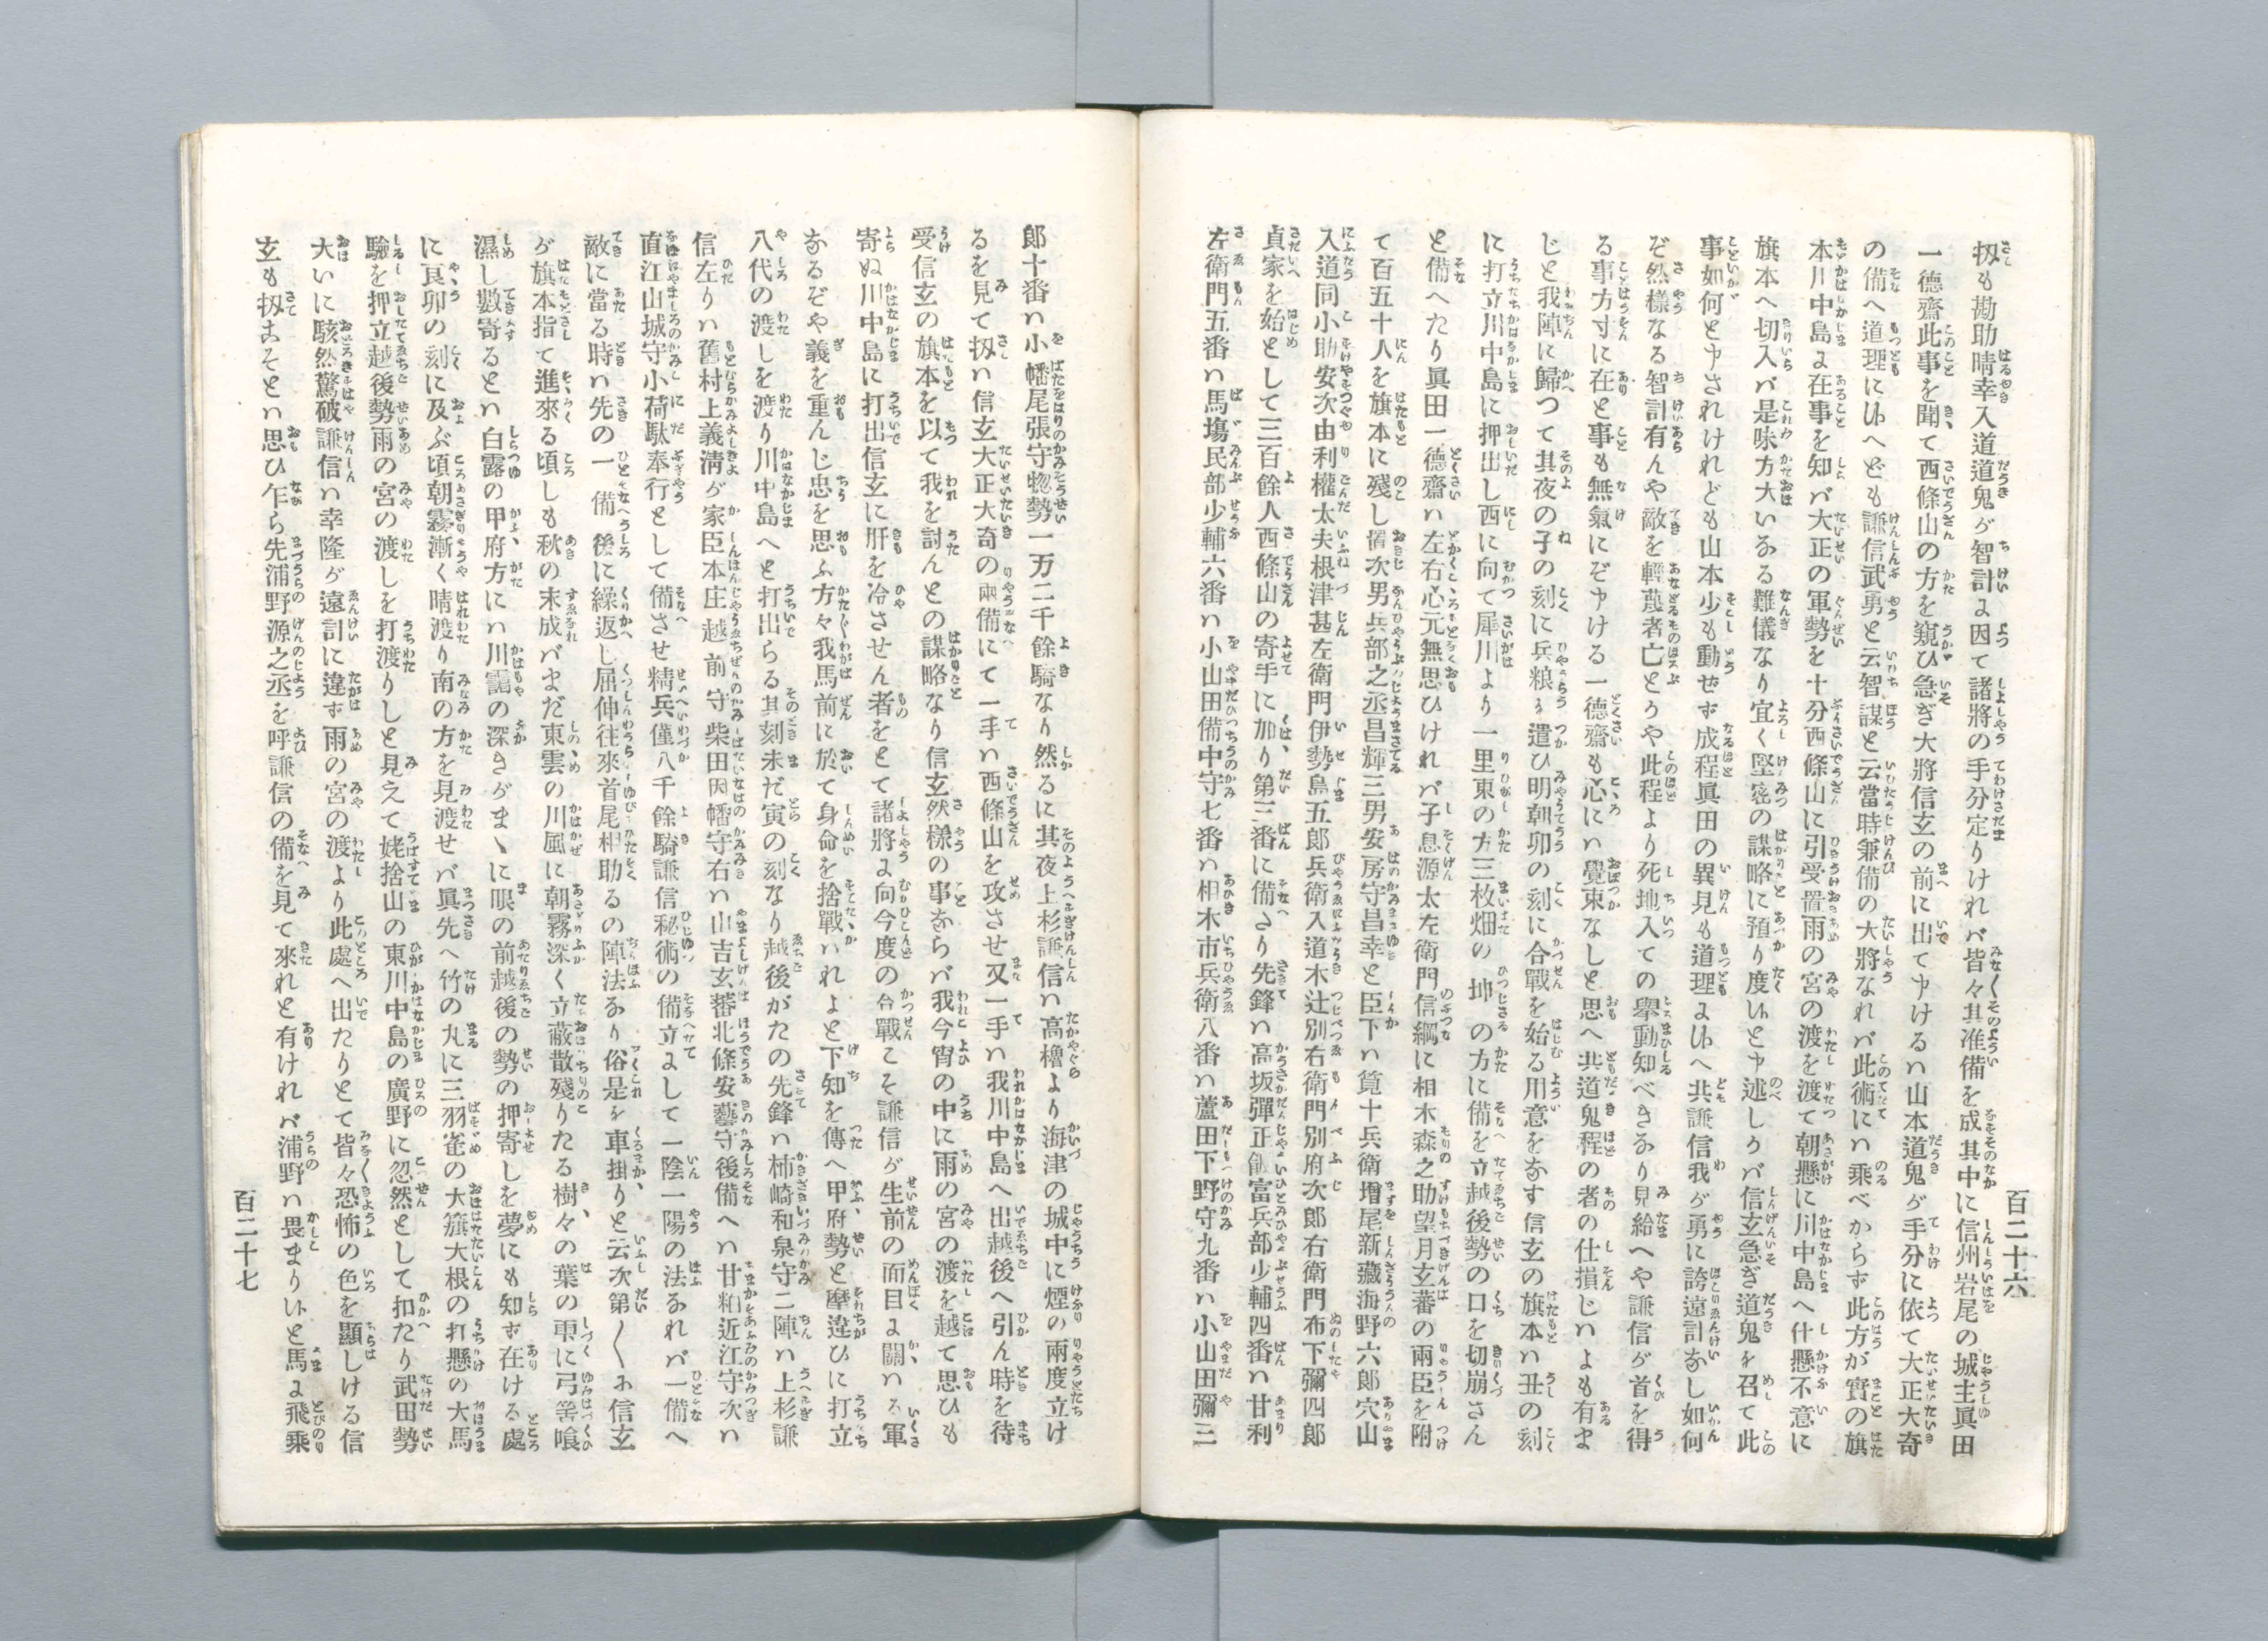 百二十六
扨も勘助晴幸入道道鬼が智計に因て諸將の手分定りければ皆々其准備を成其中に信州岩尾の城主眞田
一德齋此事を聞て西條山の方を窺ひ急ぎ大將信玄の前に出て申けるハ山本道鬼が手分に依て大正大奇
の備へ道理に候へども謙信武勇と云智謀と云當時兼備の大將なれバ此術にハ乘べからず此方が實の旗
本川中島に在事を知バ大正の軍勢を十分西條山に引受置雨の宮の渡を渡て朝懸に川中島へ仕懸不意に
旗本へ切入バ是味方大いなる難儀なり宜く堅密の謀略に預り度候と申述しかバ信玄急ぎ道鬼を召て此
事如何と申されけれども山本少も動ぜず成程眞田の異見も道理に候へ共謙信我が勇に誇遠計なし如何
ぞ然樣なる智計有んや敵を輕蔑者亡とかや此程より死地入ての擧動知べきなり見給へや謙信が首を得
る事方寸に在と事も無氣にぞ申ける一德齋も心にハ覺束なしと思へ共道鬼程の者の仕損じハよも有ま
じと我陣に歸つて其夜の子の刻に兵粮を遣ひ明朝卯の刻に合戰を始る用意をなす信玄の旗本ハ丑の刻
に打立川中島に押出し西に向て犀川より一里東の方三枚畑の坤の方に備を立越後勢の口を切崩さん
と備へたり眞田一德齋ハ左右心元無思ひけれバ子息源太左衛門信綱に相木森之助望月玄蕃の兩臣を附
て百五十人を旗本に殘し置次男兵部之丞昌輝三男安房守昌幸と臣下ハ筧十兵衛增尾新藏海野六郎穴山
入道同小助安次由利權太夫根津甚左衛門伊勢島五郎兵衛入道木辻別右衛門別府次郎右衛門布下彌四郎
貞家を始として三百餘人西條山の寄手に加り第三番に備さり先鋒ハ高坂彈正飫富兵部少輔四番ハ甘利
左衛門五番ハ馬塲民部少輔六番ハ小山田備中守七番ハ相木市兵衛八番ハ蘆田下野守九番ハ小山田彌三
郎十番ハ小幡尾張守惣勢一万二千餘騎なり然るに其夜上杉謙信ハ高櫓より海津の城中に煙の兩度立け
るを見て扨ハ信玄大正大奇の兩備にて一手ハ西條山を攻させ又一手ハ我川中島へ出越後へ引ん時を待
受信玄の旗本を以て我を討んとの謀略なり信玄然樣の事ならバ我今宵の中に雨の宮の渡を越て思ひも
寄ぬ川中島に打出信玄に肝を冷させん者をとて諸將に向今度の合戰こそ謙信が生前の面目に關ハる軍
なるぞや義を重んじ忠を思ふ方々我馬前に於て身命を捨戰ハれよと下知を傳へ甲府勢と摩違ひに打立
八代の渡しを渡り川中島へと打出らる其刻未だ寅の刻なり越後がたの先鋒ハ柿崎和泉守二陣ハ上杉謙
信左りハ舊村上義淸が家臣本庄越前守柴田因幡守右ハ山吉玄蕃北條安藝守後備へハ甘粕近江守次ハ
直江山城守小荷駄奉行として備させ精兵僅八千餘騎謙信秘術の備立にして一陰一陽の法なれバ一備へ
敵に當る時ハ先の一備後に繰返し屈伸往來首尾相助るの陣法なり俗是を車掛りと云次第〱に信玄
が旗本指て進來る頃しも秋の末成バまだ東雲の川風に朝霧深く立蔽散殘りたる樹々の葉の雫に弓弩喰
濕し數寄るとハ白露の甲府方にハ川靄の深きがまゝに眼の前越後の勢の押寄しを夢にも知ず在ける處
に良卯の刻に及ぶ頃朝霧漸く晴渡り南の方を見渡せバ眞先へ竹の丸に三羽雀の大籏大根の打懸の大馬
驗を押立越後勢雨の宮の渡しを打渡りしと見えて姥捨山の東川中島の廣野に忽然として扣たり武田勢
大いに駭然驚破謙信ハ幸隆が遠計に違ず雨の宮の渡より此處へ出たりとて皆々恐怖の色を顯しける信
玄も扨こそとハ思ひ乍ら先浦野源之丞を呼謙信の備を見て來れと有けれバ浦野ハ畏まり候と馬に飛乘
百二十七